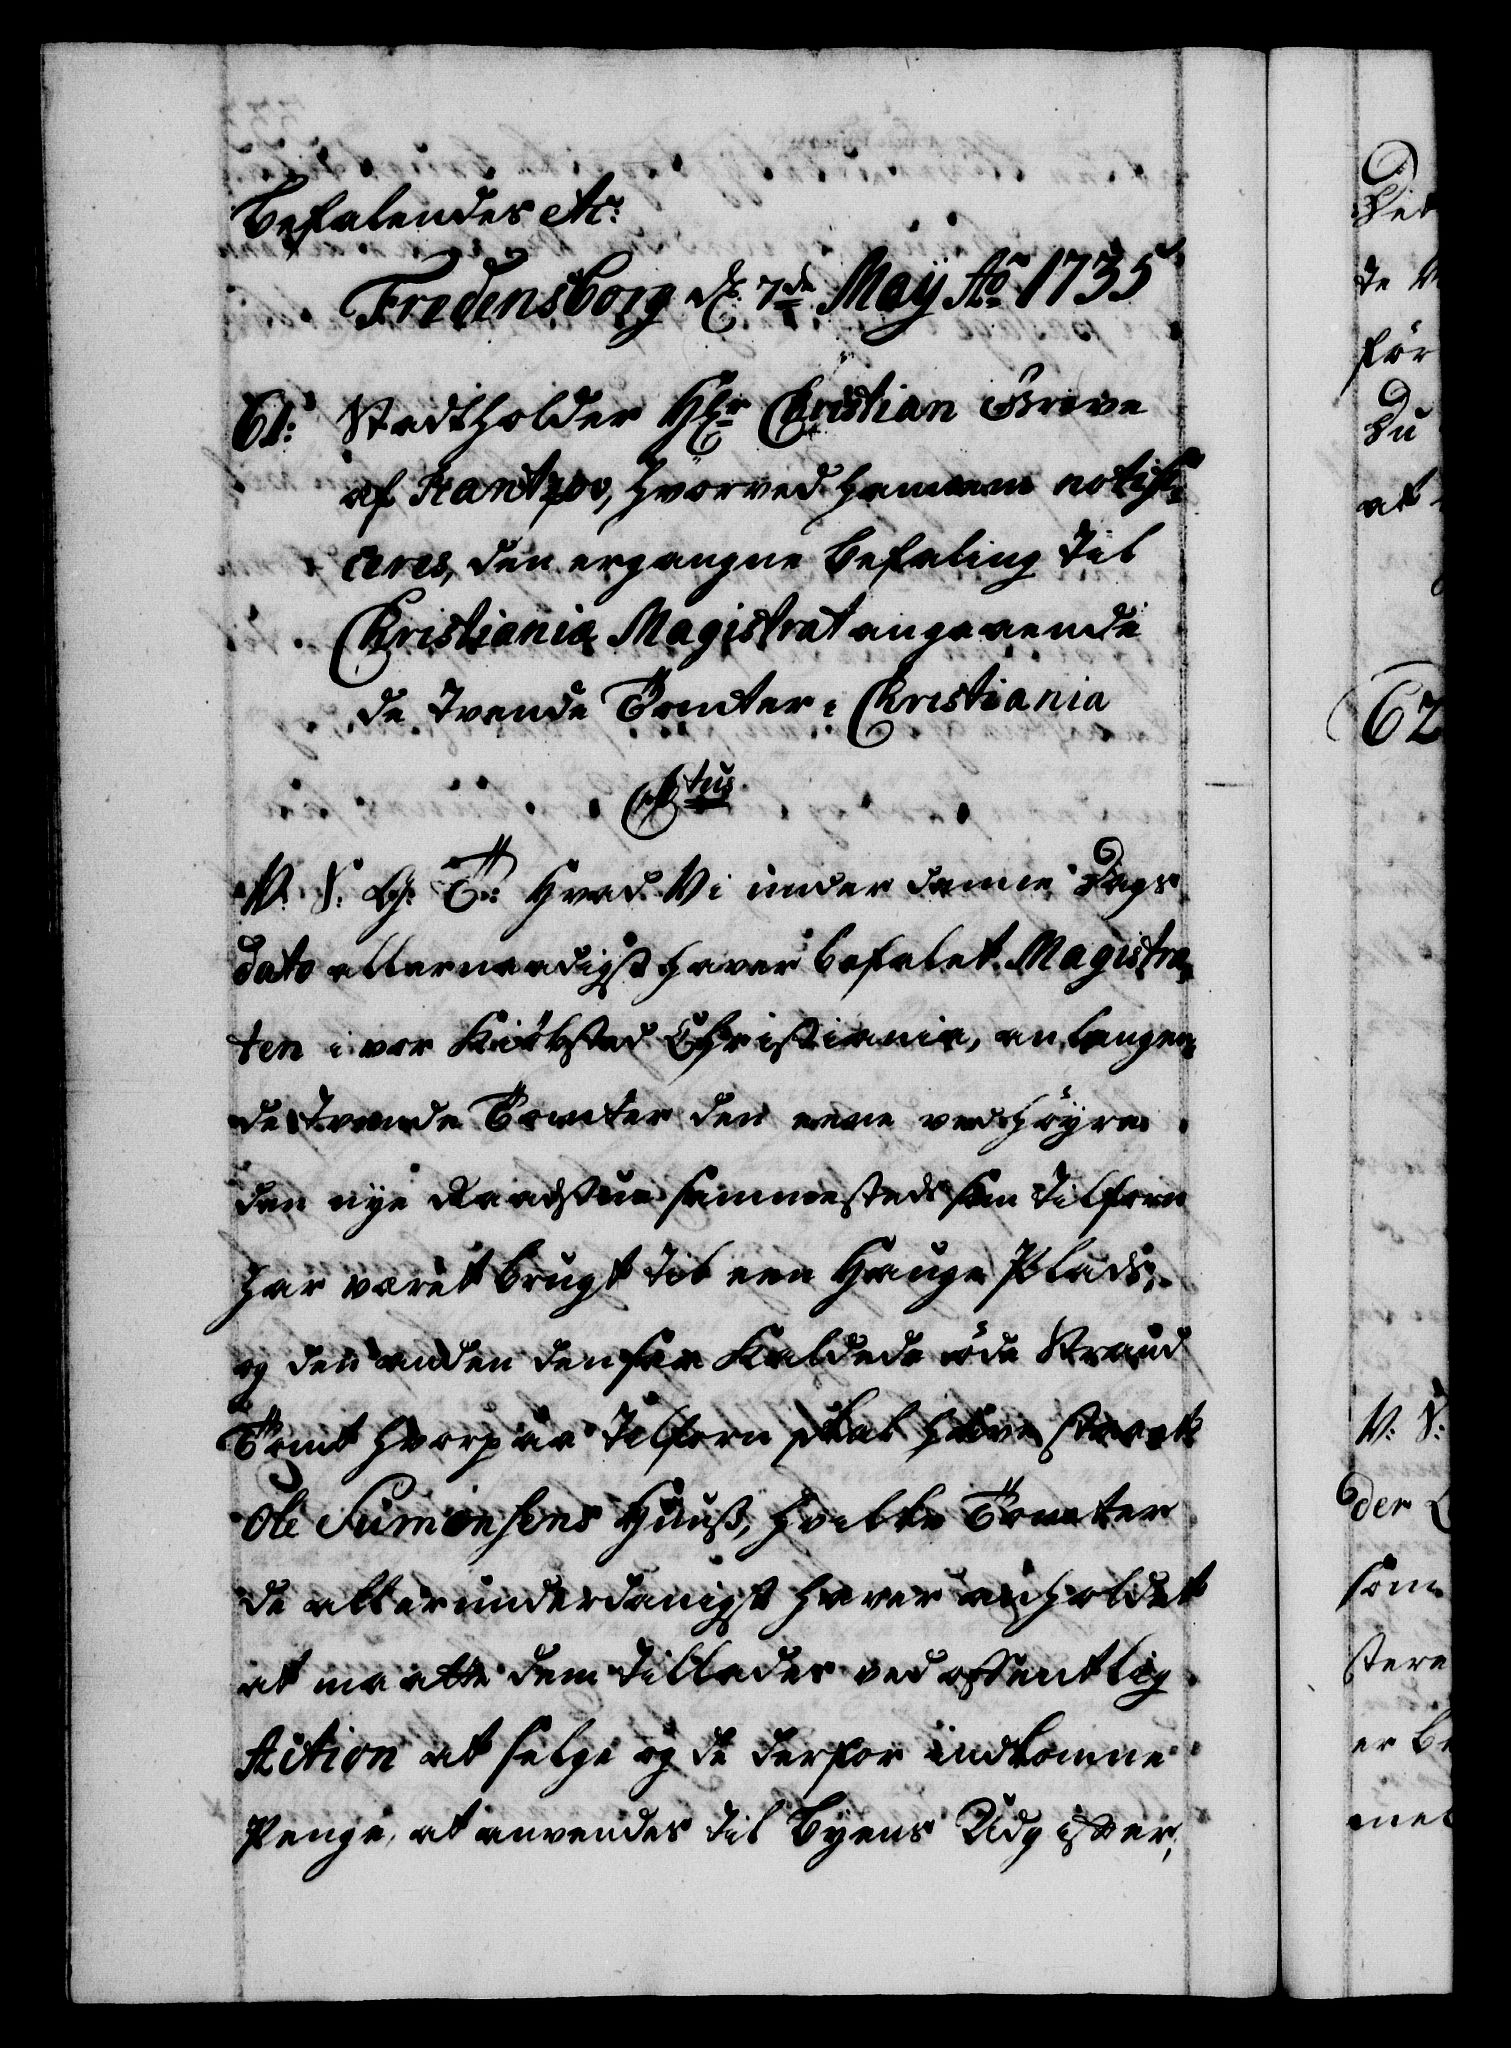 Befalendes etc:
Fredensborg d: 7de Maÿ Ao 1735
61: Stadtholder Hr Christian Greve
af Rantzov, hvorved hannem notifi-
ceres, den ergangne befaling til
Christiania Magistrat angaaende
de tvende Tomter i Christiania
Ctus
V. S. G. T: Hvad Vi under denne Dags
dato allernaadigst haver befalet Magistra-
ten i vor Kiöbsted Christiania, anlangen-
de tvende Tomter den eene ved höyre
den nye Raadstue sammesteds som tilforn
har været brugt til een Hauge Plads,
og den anden den saa Kaldede öde Strand
Tomt hvorpaa tilforn skal have staaet
Ole Simonsens Huuß, hvilke Tomter
de allerunderdanigst haver anholdet
at maatte dem tillades ved offentlig
Action at selge og de derfor indkomne
Penge, at anvendes til Byens Udgifter,
Det
de
för
Du
at
62
V: S:
der
som
stere
er be